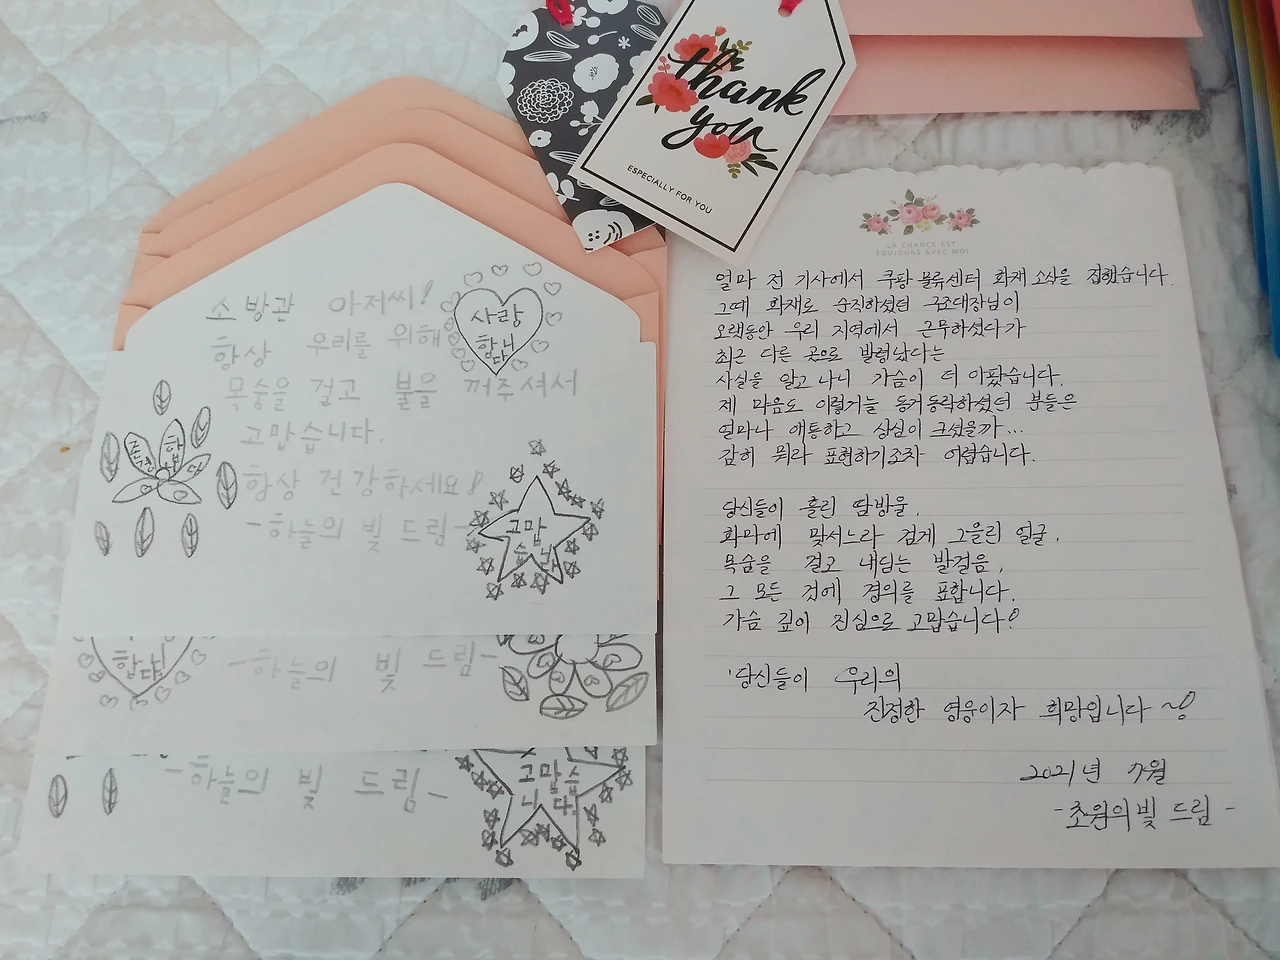 thank
you
ESPECIALLY FOR YOU
소방관 아저씨!
항상 우리를 위해
목숨을 걸고 불을 꺼주셔서
고맙습니다.
항상 건강하세요!
-하늘의 빛 드림-
사랑
합니
다
존경
합
니다
고맙
습니다
합니다!
-하늘의 빛 드림-
-하늘의 빛 드림-
고맙습
니다.
LA CHANCE EST
TOUJOURS AVEC MOI
얼마 전 기사에서 쿠팡 물류센터 화재 소식을 접했습니다.
그때 화재로 순직하셨던 구조대장님이
오랫동안 우리 지역에서 근무하셨다가
최근 다른 곳으로 발령났다는
사실을 알고 나니 가슴이 더 아팠습니다.
제 마음도 이렇거늘 동거동락하셨던 분들은
얼마나 애통하고 상심이 크셨을까...
감히 뭐라 표현하기조차 어렵습니다.
당신들이 흘린 땀방울,
화마에 맞서느라 검게 그을린 얼굴,
목숨을 걸고 내딛는 발걸음,
그 모든 것에 경의를 표합니다.
가슴 깊이 진심으로 고맙습니다!
'당신들이 우리의
진정한 영웅이자 희망입니다~!
2021년 7월
-초원의 빛 드림-